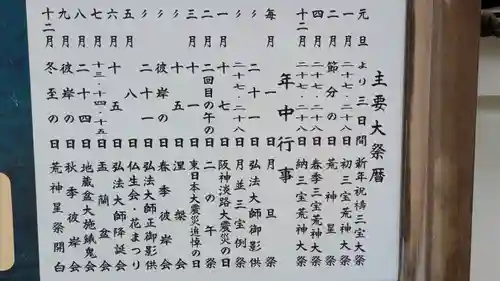 主要大祭暦
元旦より三日間新年祝祷三宝大祭
一月二十七、二十八日初三宝荒神大祭
二月節分の日荒神星祭
四月二十七、二十八日春季三宝荒神大祭
十二月二十七、二十八日納三宝荒神大祭
年中行事
毎月一日月旦祭
〃二十一日弘法大師御影供
〃二十七、二十八日月並三宝例祭
一月十七日阪神淡路大震災の日
二月二回目の午の日二の午祭
三月十一日東日本大震災追悼の日
〃十五日涅槃会
〃彼岸の日春季彼岸会
〃二十一日弘法大師正御影供
五月八日仏生会・花まつり
六月十五日弘法大師降誕会
七月十三・十四・十五日盂蘭盆会
八月二十四日地蔵盆大施餓鬼会
九月彼岸の日秋季彼岸会
十二月冬至の日荒神星祭開白